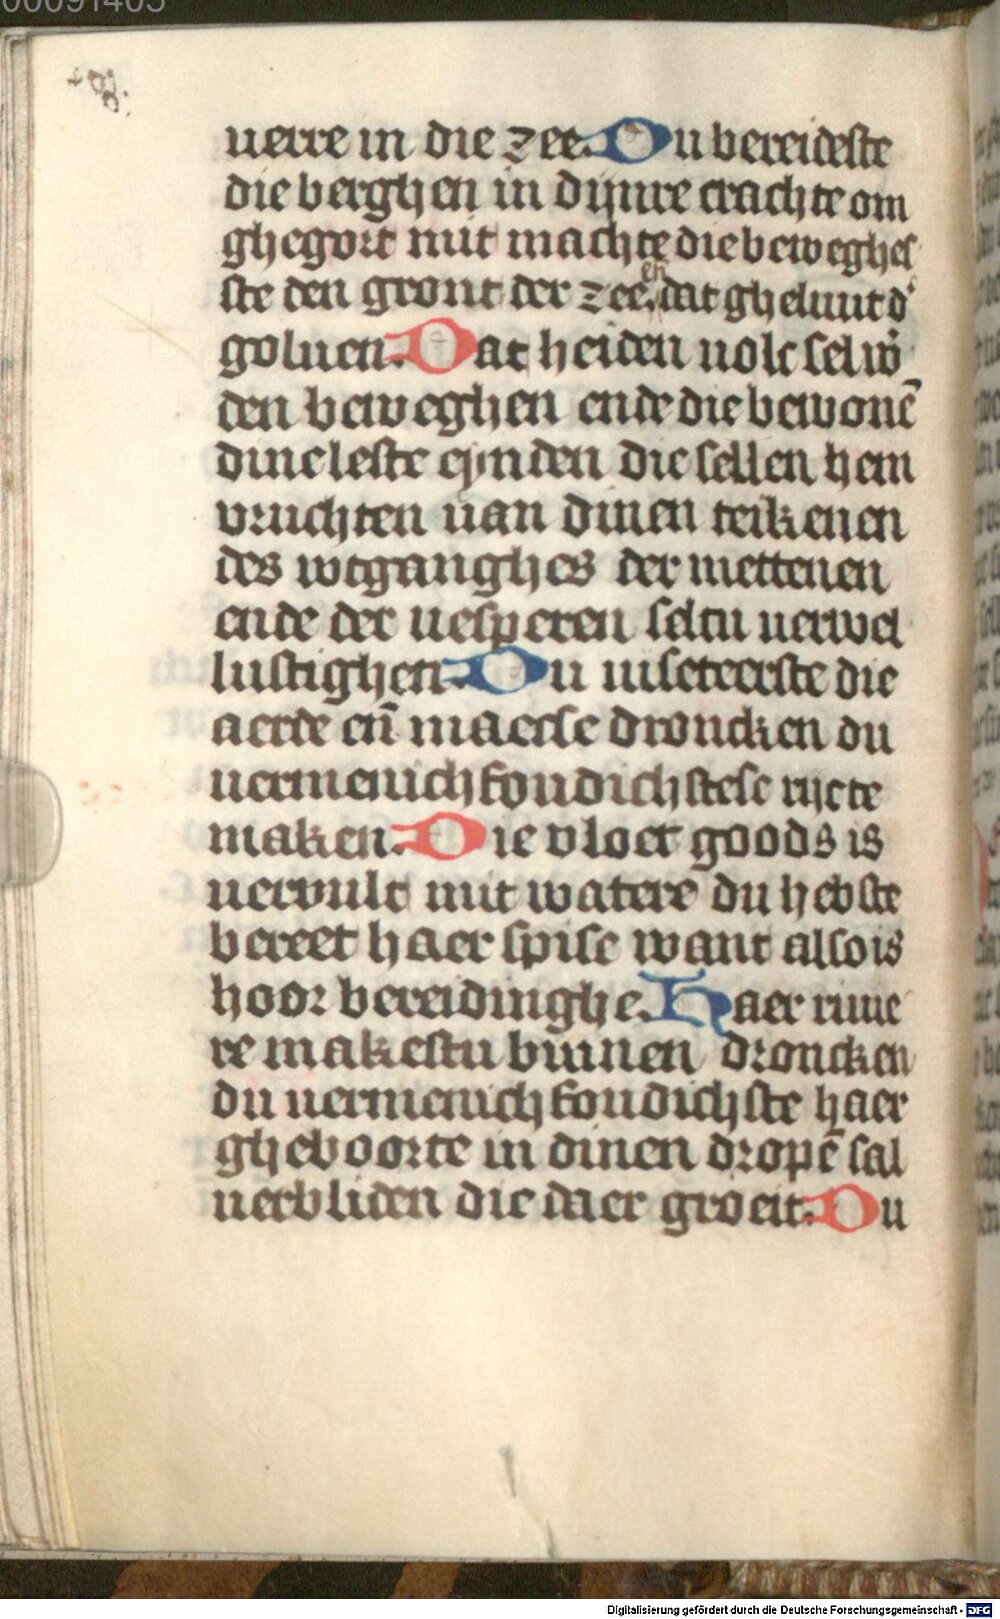 00091405
uerre in die zee. Du bereideste
die berghen in dijnre crachte om
ghegort mit machte die beweghes
ste den gront der zee. en dat gheluut d'
goluen. Dat heiden uolc sel w'
den beweghen ende die bewonē
dine leste eynden die sellen hem
vruchten uan dinen teikenen
des wtganghes der mettenen
ende der uesperen seltu uerwel
lustighen. Du uiseteerste die
aerde en̄ maecse droncken du
uermenichfoudichstese rijcte
maken. Die vloet goods is
ueruult mit watere du hebste
bereet haer spise want also is
hoor bereidinghe. Haer riuie
re makestu binnen droncken
du uermenichfoudichste haer
gheboorte in dinen dropē sal
uerbliden die daer groeit. Du
Digitalisierung gefördert durch die Deutsche Forschungsgemeinschaft - DFG